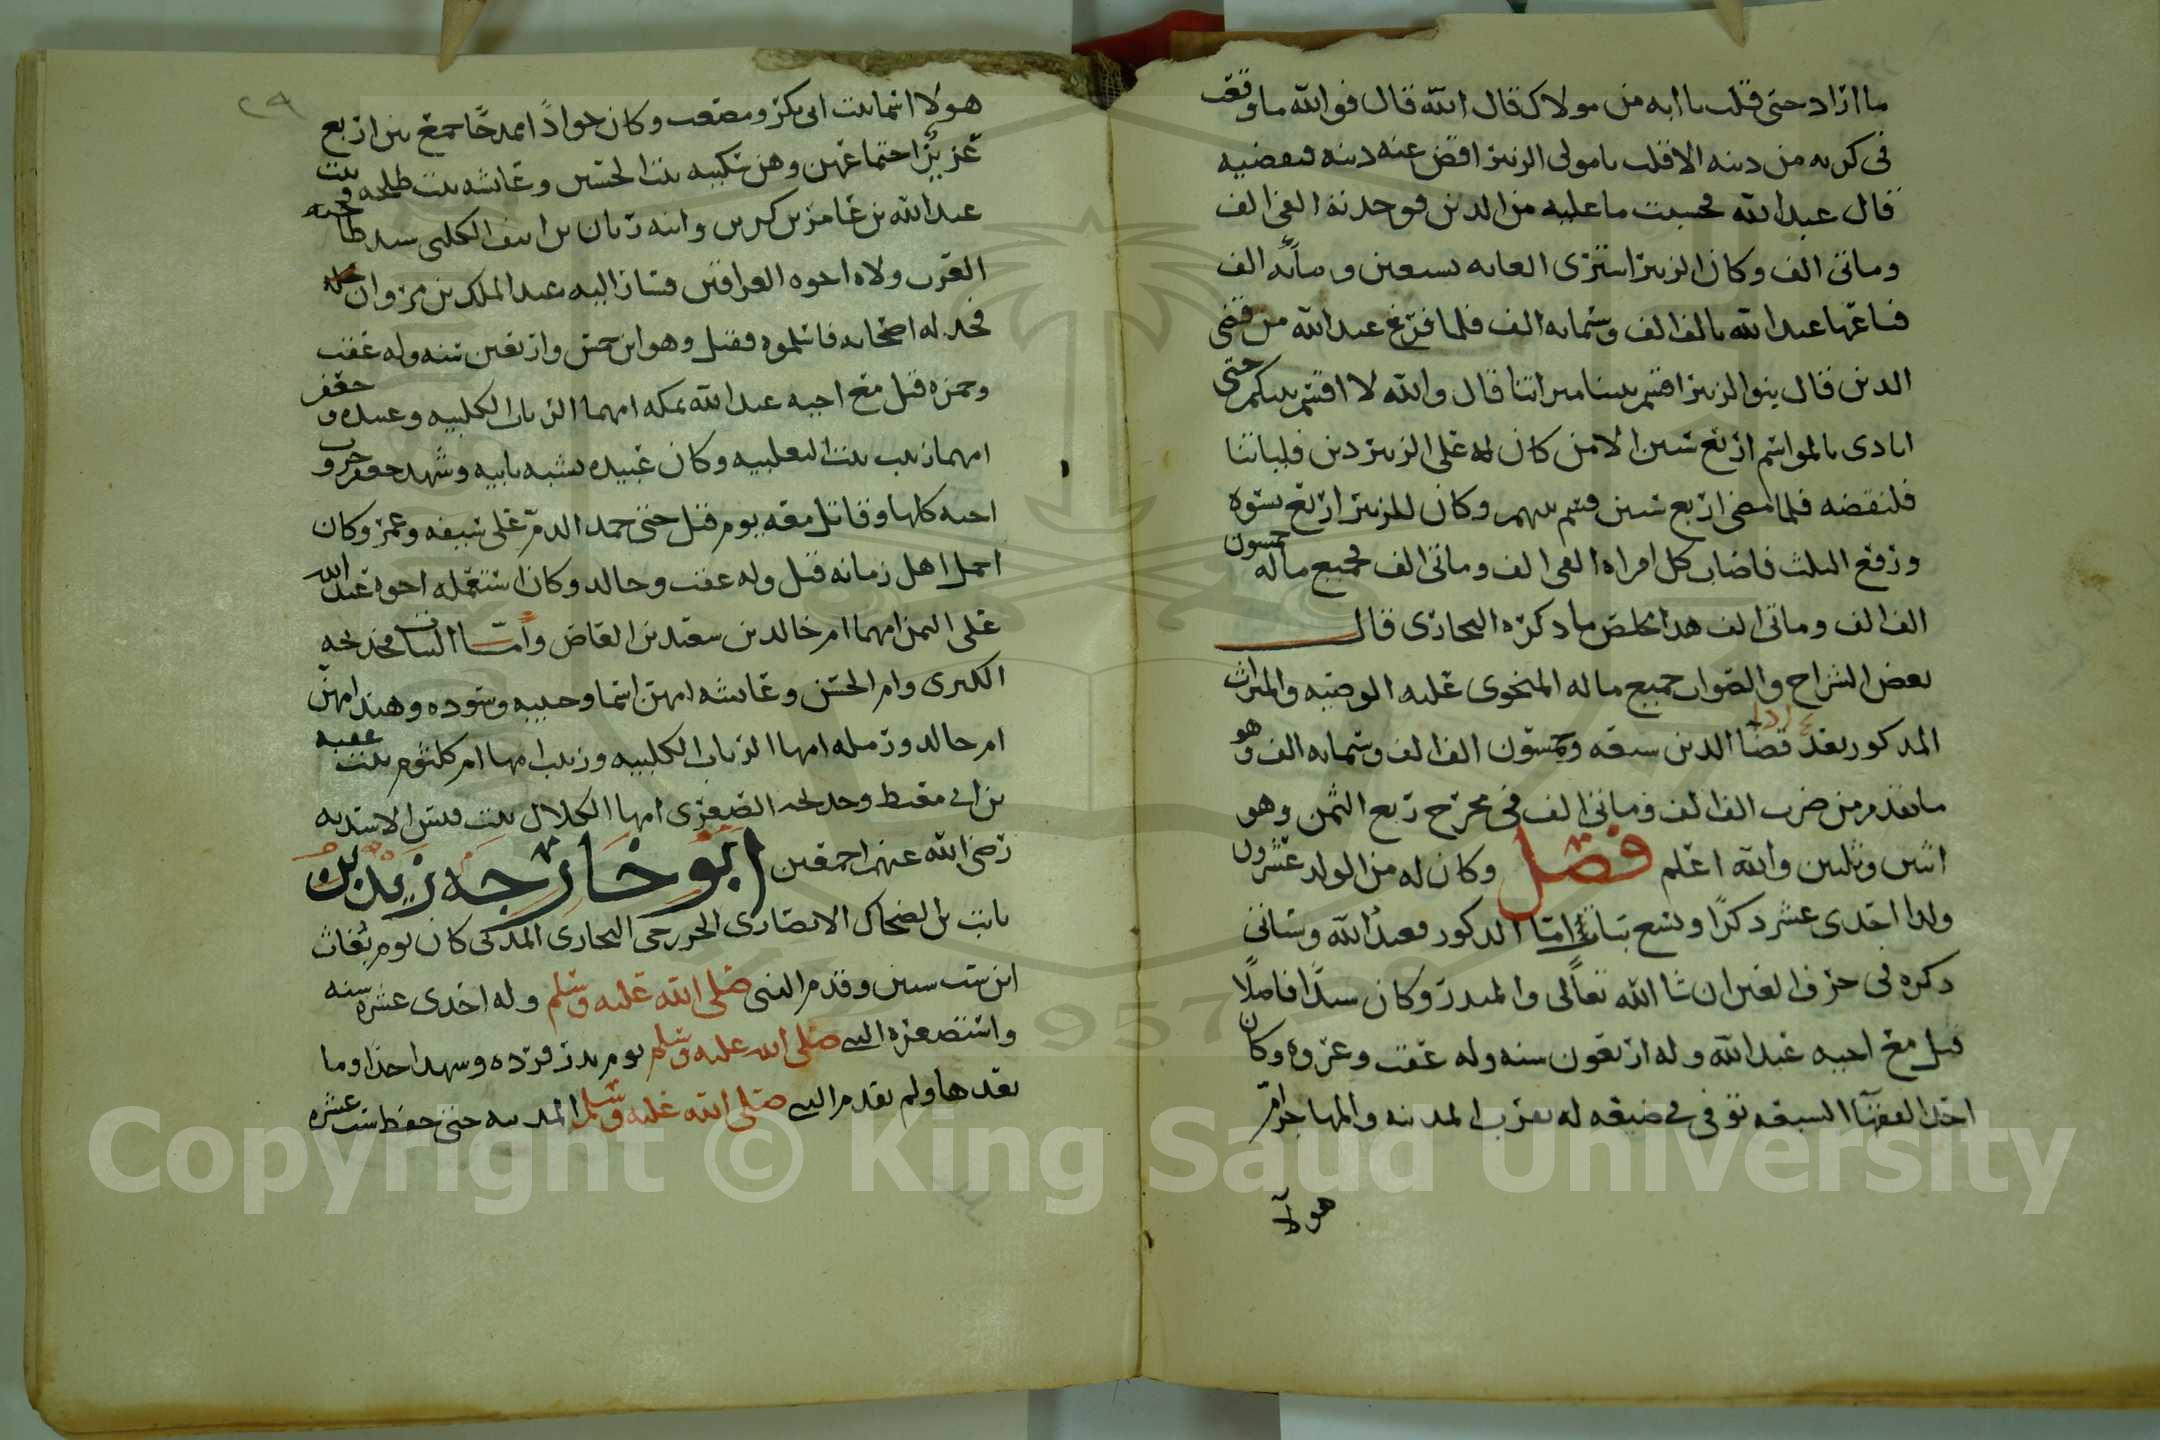 ما اراد حتى قلت يا ابه من مولاك قال الله قال فوالله ما وقعت
في كربه من دينه الا قلت يا مولى الزبير اقض عنه دينه فيقضيه
قال عبد الله فحسبت ما عليه من الدين فوجدته الفي الف
ومائتي الف وكان الزبير اشترى الغابه بسبعين ومائه الف
فباعها عبد الله بالف الف وستمايه الف فلما فرغ عبد الله من قضى
الدين قال بنو الزبير اقسم بيننا ميراثنا قال والله لا اقسم بينكم حتى
انادى بالمواسم اربع سنين الا من كان له على الزبير دين فلياتنا
فلنقضه فلما مضى اربع سنين قسم بينهم وكان للزبير اربع نسوة
ورفع الثلث فاصاب كل امراه الفي الف ومائتي الف فجميع ماله خمسون
الف الف ومائتي الف هذا ملخص ما ذكره البخاري قال
بعض الشراح والصواب جميع ماله المحتوى عليه الوصيه والميراث
المذكور بعد قضا الدين سبعه وخمسون الف الف وستمايه الف وهو
ما تقدم من ضرب الف الف ومائتي الف في مخرج ربع الثمن وهو
اثنين وثلثين والله اعلم فصل وكان له من الولد عشرون
ولدا احدى عشر ذكرًا وتسع بنات اما الذكور فعبد الله وسياتي
ذكره في حرف العين ان شا الله تعالى والمنذر وكان سيدًا فاضلًا
قتل مع اخيه عبد الله وله اربعون سنه وله عقب وعروه وكان
احد الفقها السبعه توفي في ضيعه له بقرب المدينه والمهاجر ام
هولآ
٢٩
هولا اسما بنت ابي بكر ومصعب وكان جوادًا ممدحًا جمع بين اربع
عزيز اجتماعهن وهن سكينه بنت الحسين وعائشه بنت طلحه وبنت
عبد الله بن عامر بن كريز وابنه زبان بن انيف الكلبي سيد ضاحيه
العرب ولاه اخوه العراقين فسار اليه عبد الملك بن مروان
فخذله اصحابه فاسلموه فقتل وهو ابن خمس واربعين سنه وله عقب
وحمزه قتل مع اخيه عبد الله بمكه امهما الرباب الكلبيه وعبيده وجعفر
امهما زينب بنت التعلبيه وكان عبيده يشبه بابيه وشهد جعفر حروب
اخيه كلها وقاتل معه يوم قتل حتى جمد الدم على سيفه وعمر وكان
اجمل اهل زمانه قتل وله عقب وخالد وكان استعمله اخوه عبد الله
على اليمن امهما ام خالد بن سعيد بن العاص واما البنات فخديجه
الكبرى وام الحسن وعائشه امهن اسما وحبيبه وسوده وهند امهن
ام خالد ورمله امها الرباب الكلبيه وزينب امها ام كلثوم بنت عقبه
بن ابي معيط وخديجه الصغرى امها الحلال بنت قيس الاسديه
رضى الله عنهم اجمعين ابو خارجه زيد بن
ثابت بن الضحاك الانصاري الخزرجي النجاري المدني كان يوم بعاث
ابن ست سنين وقدم النبي صلى الله عليه وسلم وله احدى عشره سنه
واستصغره النبي صلى الله عليه وسلم يوم بدر فرده وشهد احدا وما
بعدها ولم يقدم النبي صلى الله عليه وسلم المدينه حتى حفظ ست عشره
Copyright © King Saud University
1957